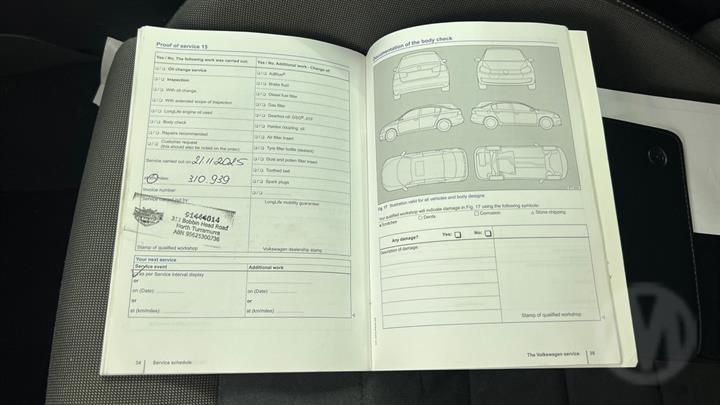 Proof of service 15
Yes / No, The following work was carried out:
Oil change service
Inspection
With oil change
With extended scope of inspection
LongLife engine oil used
Body check
Repairs recommended
Customer request
(this should also be noted on the order)
Service carried out on 21.11.2025
310.939
Invoice number:
Service carried out by:
311 Bobbin Head Road
North Turramurra
ABN 95625300736
Stamp of qualified workshop
Yes / No, Additional work - Change of:
AdBlue®
Brake fluid
Diesel fuel filter
Gas filter
Gearbox oil
Haldex coupling oil
Air filter insert
Tyre filler bottle (sealant)
Dust and pollen filter insert
Toothed belt
Spark plugs
LongLife mobility guarantee
Volkswagen dealership stamp
Your next service
Service event
as per Service interval display
or
on (Date)
or
at (km/miles)
Additional work
on (Date)
or
at (km/miles)
54 Service schedule
Documentation of the body check
Fig. 17 Illustration valid for all vehicles and body designs
Your qualified workshop will indicate damage in Fig. 17 using the following symbols:
Scratches Dents Corrosion Stone chipping
Any damage? Yes: No:
Description of damage:
Stamp of qualified workshop
The Volkswagen service